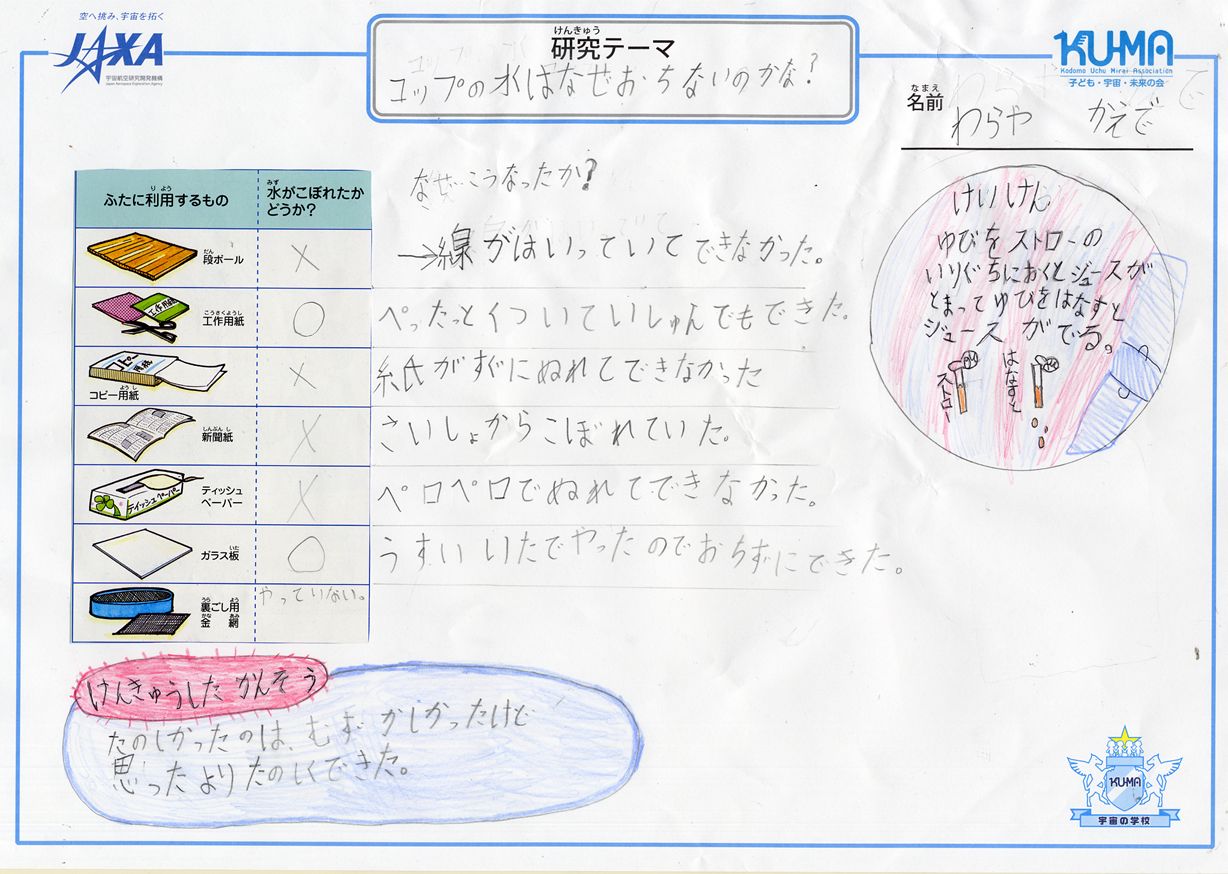 空へ挑み、宇宙を拓く
JAXA
宇宙航空研究開発機構
Japan Aerospace Exploration Agency
けんきゅう
研究テーマ
コップの水はなぜおちないのかな?
KU-MA
Kodomo Uchu Mirai Association
子ども・宇宙・未来の会
なまえ
名前
わらや かえで
ふたに利用するもの
りよう
水がこぼれたか
みず
どうか?
なぜこうなったか?
段ボール
だん
×
→線がはいっていてできなかった。
工作用紙
こうさくようし
工作用紙
○
ぺったっとくついていしゅんでもできた。
コピー用紙
コピー用紙
ようし
×
紙がすぐにぬれてできなかった
新聞紙
しんぶんし
×
さいしょからこぼれていた。
ティッシュペーパー
ティッシュ
ペーパー
×
ペロペロでぬれてできなかった。
ガラス板
いた
○
うすいいたでやったのでおちずにできた。
裏ごし用
うら よう
金網
かな あみ
やっていない。
けいけん
ゆびをストローの
いりぐちにおくとジュースが
とまってゆびをはなすと
ジュースがでる。
ストロー
はなすと
けんきゅうしたかんそう
たのしかったのは、むずかしかったけど
思ったよりたのしくできた。
KU-MA
宇宙の学校